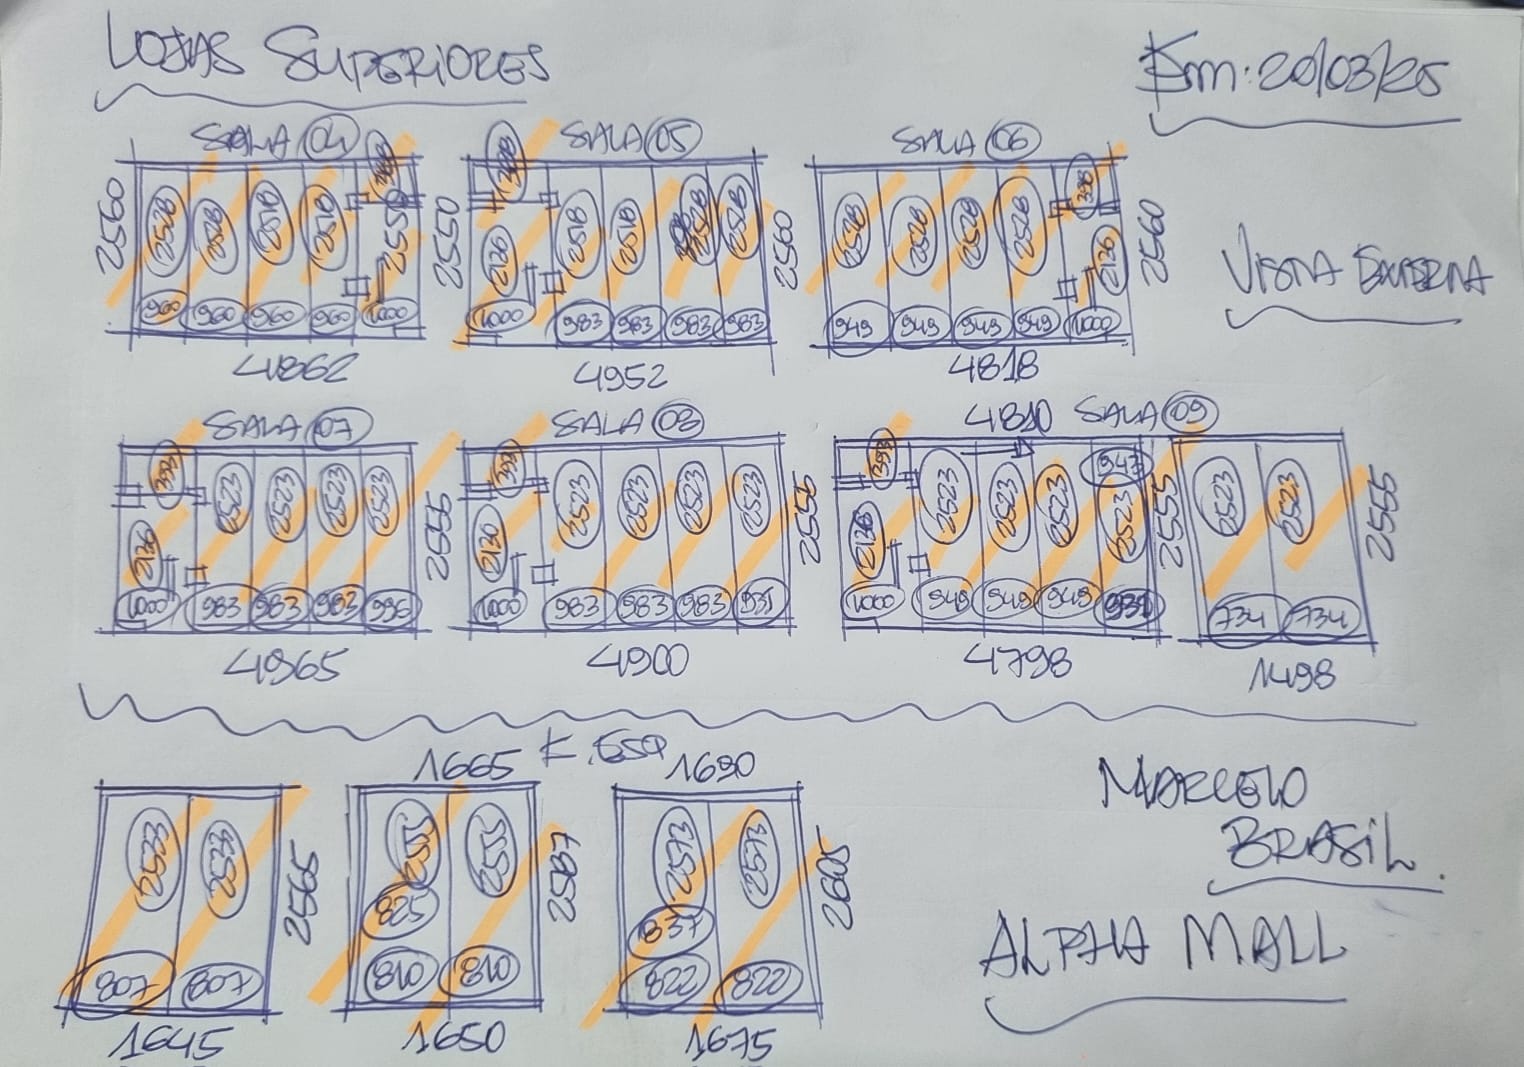 LOJAS SUPERIORES
Em: 20/03/25
SALA 04
2560
2528 2528 2518 2518 2550
960 960 960 960 1000
4862
SALA 05
2550
398
2126 2518 2518 2528 2528
1000 983 983 983 983
2560
4952
SALA 06
398
2528 2528 2528 2528 2126
949 949 949 949 1000
2560
4818
VISTA EXTERNA
SALA 07
393
2523 2523 2523 2523
2126
1000 983 983 983 996
2555
4965
SALA 08
393
2523 2523 2523 2523
2126
1000 983 983 983 931
2555
4900
4810 SALA 09
393
947
2523 2523 2523 2523
2126
1000 949 949 949 937
2555
4798
2523 2523
734 734
2555
1498
2533 2533
807 807
2565
1645
1665
2555 2555
825
810 810
2587
1650
1690
2573 2573
837
822 822
2605
1675
MARCELO
BRASIL.
ALPHA MALL